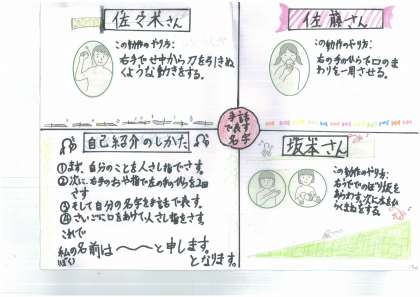 佐々木さん
この動作のやり方:
右手でせ中から刀を引きぬ
くような動きをする。
佐藤さん
この動作のやり方:
右の手のひらで口のま
わりを一周させる。
手話
で表す
名字
自己紹介のしかた
①まず、自分のことを人さし指でさす。
②次に、右手のおや指で左の手のひらを2回
さす
③そして自分の名字を手話で表す。
④さいごに口をあけて人さし指をさす
これで
私の名前は〜〜と申します。
(ぼく)
となります。
坂本さん
この動作のやり方:
右うででのぼり坂を
あらわす。次に本をひ
らくまねをする。